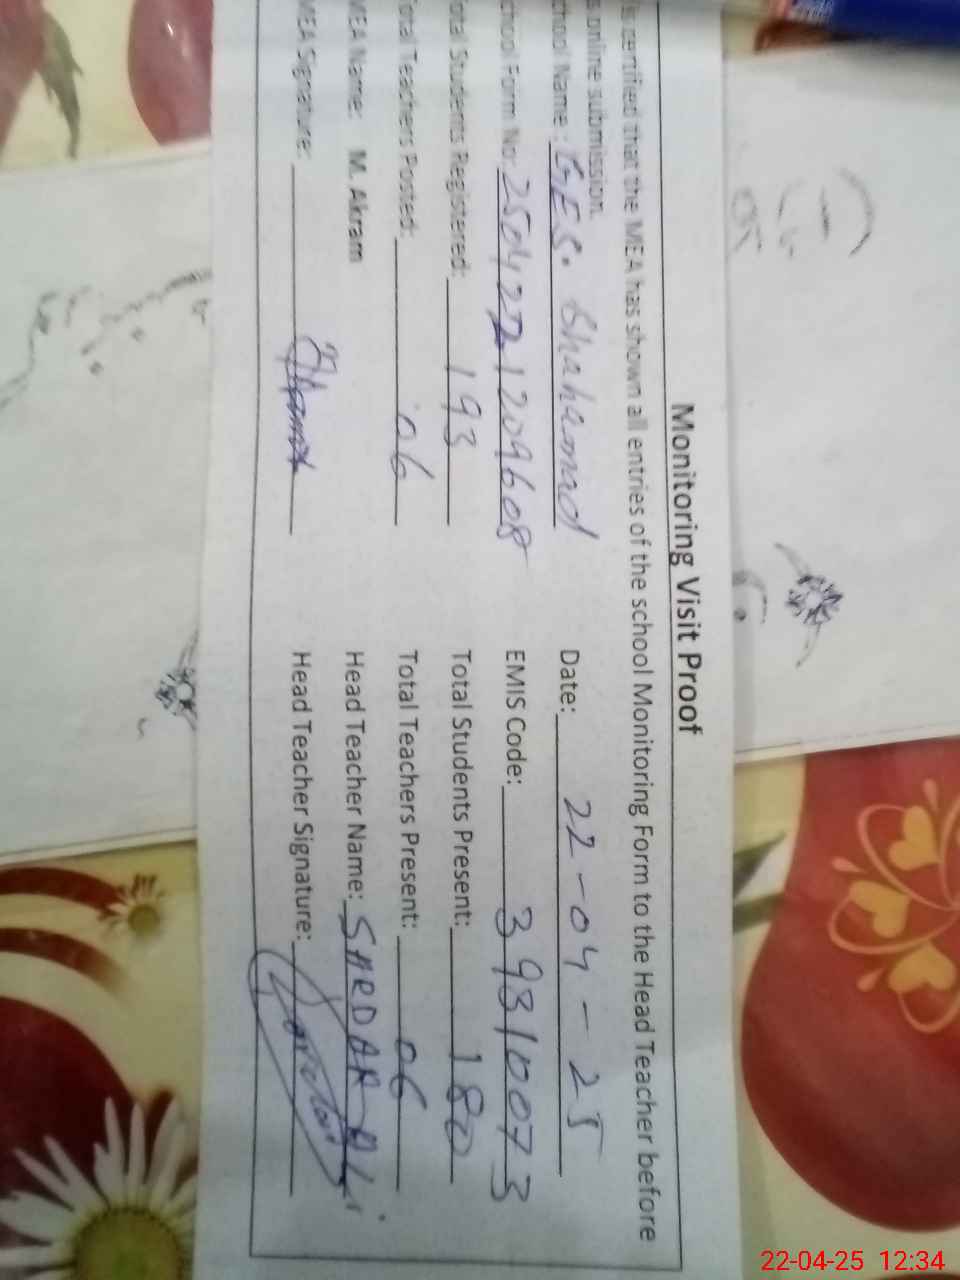 Monitoring Visit Proof
is certified that the MEA has shown all entries of the school Monitoring Form to the Head Teacher before
s online submission.
chool Name: GES. Shahamad Date: 22-04-25
chool Form No: 2504221209608 EMIS Code: 39310073
otal Students Registered: 193 Total Students Present: 180
otal Teachers Posted: 06 Total Teachers Present: 06
MEA Name: M. Akram Head Teacher Name: SARDAR Ali
MEA Signature: Head Teacher Signature:
22-04-25 12:34